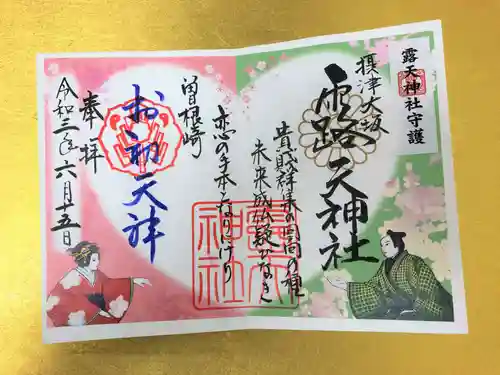 露天神社守護
摂津大坂
露天神社
貴賤群集の回向の種
未来成仏疑ひなき
恋の手本となりにけり
曽根崎
お初天神
奉拝
令和三年六月十五日
露天神社